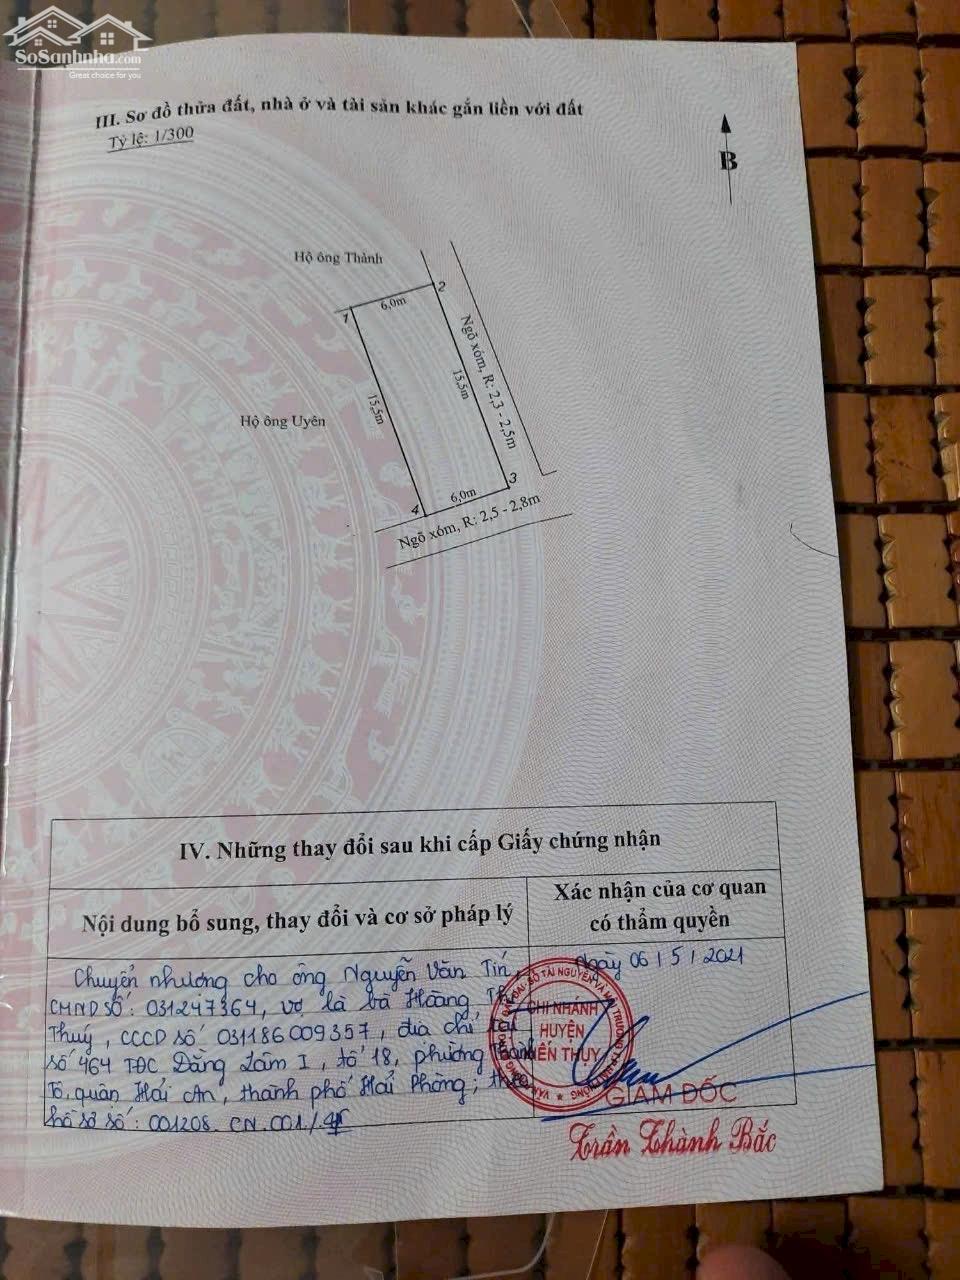 SoSanhnha.com
Great choice for you
III. Sơ đồ thửa đất, nhà ở và tài sản khác gắn liền với đất
Tỷ lệ: 1/300
B
Hộ ông Thành
2
6,0m
1
Ngõ xóm, R: 2,3 - 2,5m
15,5m
15,5m
Hộ ông Uyên
3
6,0m
4
Ngõ xóm, R: 2,5 - 2,8m
IV. Những thay đổi sau khi cấp Giấy chứng nhận
Nội dung bổ sung, thay đổi và cơ sở pháp lý
Xác nhận của cơ quan
có thẩm quyền
Chuyển nhượng cho ông Nguyễn Văn Tín,
CMND số: 031247364, vợ là bà Hoàng Thị
Thuý, CCCD số 031186009357, địa chỉ tại
số 464 TĐC Đằng Lâm I, tổ 18, phường Thành
Tô, quận Hải An, thành phố Hải Phòng; theo
hồ sơ số: 001208. CN. 001/
Ngày 06/5/2021
CHI NHÁNH
HUYỆN
KIẾN THỤY
GIÁM ĐỐC
Trần Thành Bắc